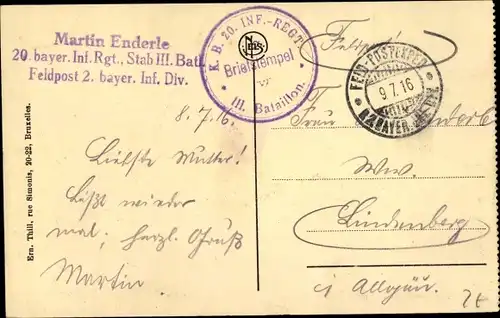 Martin Enderle
20. bayer. Inf. Rgt., Stab III. Batl.
Feldpost 2. bayer. Inf. Div.
K. B. 20. INF.-REGT.
Briefstempel
III. Bataillon.
FELD-POSTEXPED
9.7.16
BAYER.
8.7.16.
Liebste Mutter!
Läßt wieder
mal, herzl. Gruß
Martin
Frau Enderle
Wwe.
Lindenberg
i/ Allgäu.
Ern. Thill, rue Simonis, 20-22, Bruxelles.